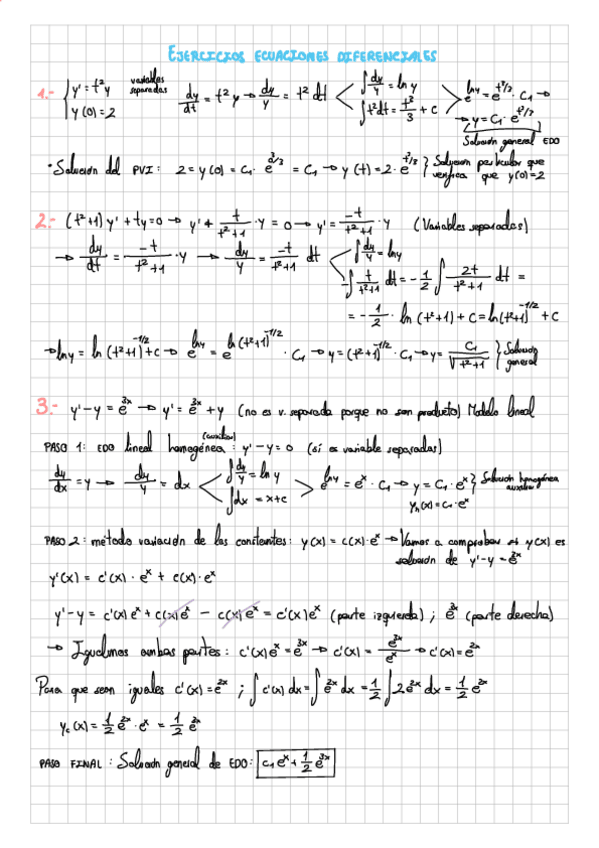 EJERCICIOS ECUACIONES DIFERENCIALES
1.- { y' = t² y ; y(0) = 2 variables separadas dy/dt = t² y → dy/y = t² dt < ∫ dy/y = ln y ; ∫ t² dt = t³/3 + c > e^(ln y) = e^(t³/3) · C₁ →
→ y = C₁ · e^(t³/3)
Solución general EDO
· Solución del PVI: 2 = y(0) = C₁ · e^(0³/3) = C₁ → y(t) = 2 · e^(t³/3) } Solución particular que verifica que y(0)=2
2.- (t²+1) y' + ty = 0 → y' + t/(t²+1) · y = 0 → y' = -t/(t²+1) · y (Variables separadas)
→ dy/dt = -t/(t²+1) · y → dy/y = -t/(t²+1) dt < ∫ dy/y = ln y ; -∫ t/(t²+1) dt = -1/2 ∫ 2t/(t²+1) dt =
= -1/2 · ln (t²+1) + C = ln(t²+1)^(-1/2) + C
→ ln y = ln (t²+1)^(-1/2) + C → e^(ln y) = e^(ln (t²+1)^(-1/2)) · C₁ → y = (t²+1)^(-1/2) · C₁ → y = C₁/√(t²+1) } Solución general
3.- y' - y = e^(3x) → y' = e^(3x) + y (no es v. separada porque no son producto) Modelo lineal
PASO 1: EDO lineal homogénea (auxiliar) : y' - y = 0 (sí es variable separadas)
dy/dx = y → dy/y = dx < ∫ dy/y = ln y ; ∫ dx = x + c > e^(ln y) = e^x · C₁ → y = C₁ · e^x } Solución homogénea auxiliar
y_h(x) = C₁ · e^x
PASO 2: método variación de las constantes: y(x) = c(x) · e^x → Vamos a comprobar si y(x) es
solución de y' - y = e^(3x)
y'(x) = c'(x) · e^x + c(x) · e^x
y' - y = c'(x) e^x + c(x) e^x - c(x) e^x = c'(x) e^x (parte izquierda) ; e^(3x) (parte derecha)
→ Igualamos ambas partes: c'(x) e^x = e^(3x) → c'(x) = e^(3x)/e^x → c'(x) = e^(2x)
Para que sean iguales c'(x) = e^(2x) ; ∫ c'(x) dx = ∫ e^(2x) dx = 1/2 ∫ 2e^(2x) dx = 1/2 e^(2x)
y_c(x) = 1/2 e^(2x) · e^x = 1/2 e^(3x)
PASO FINAL: Solución general de EDO: C₁ e^x + 1/2 e^(3x)